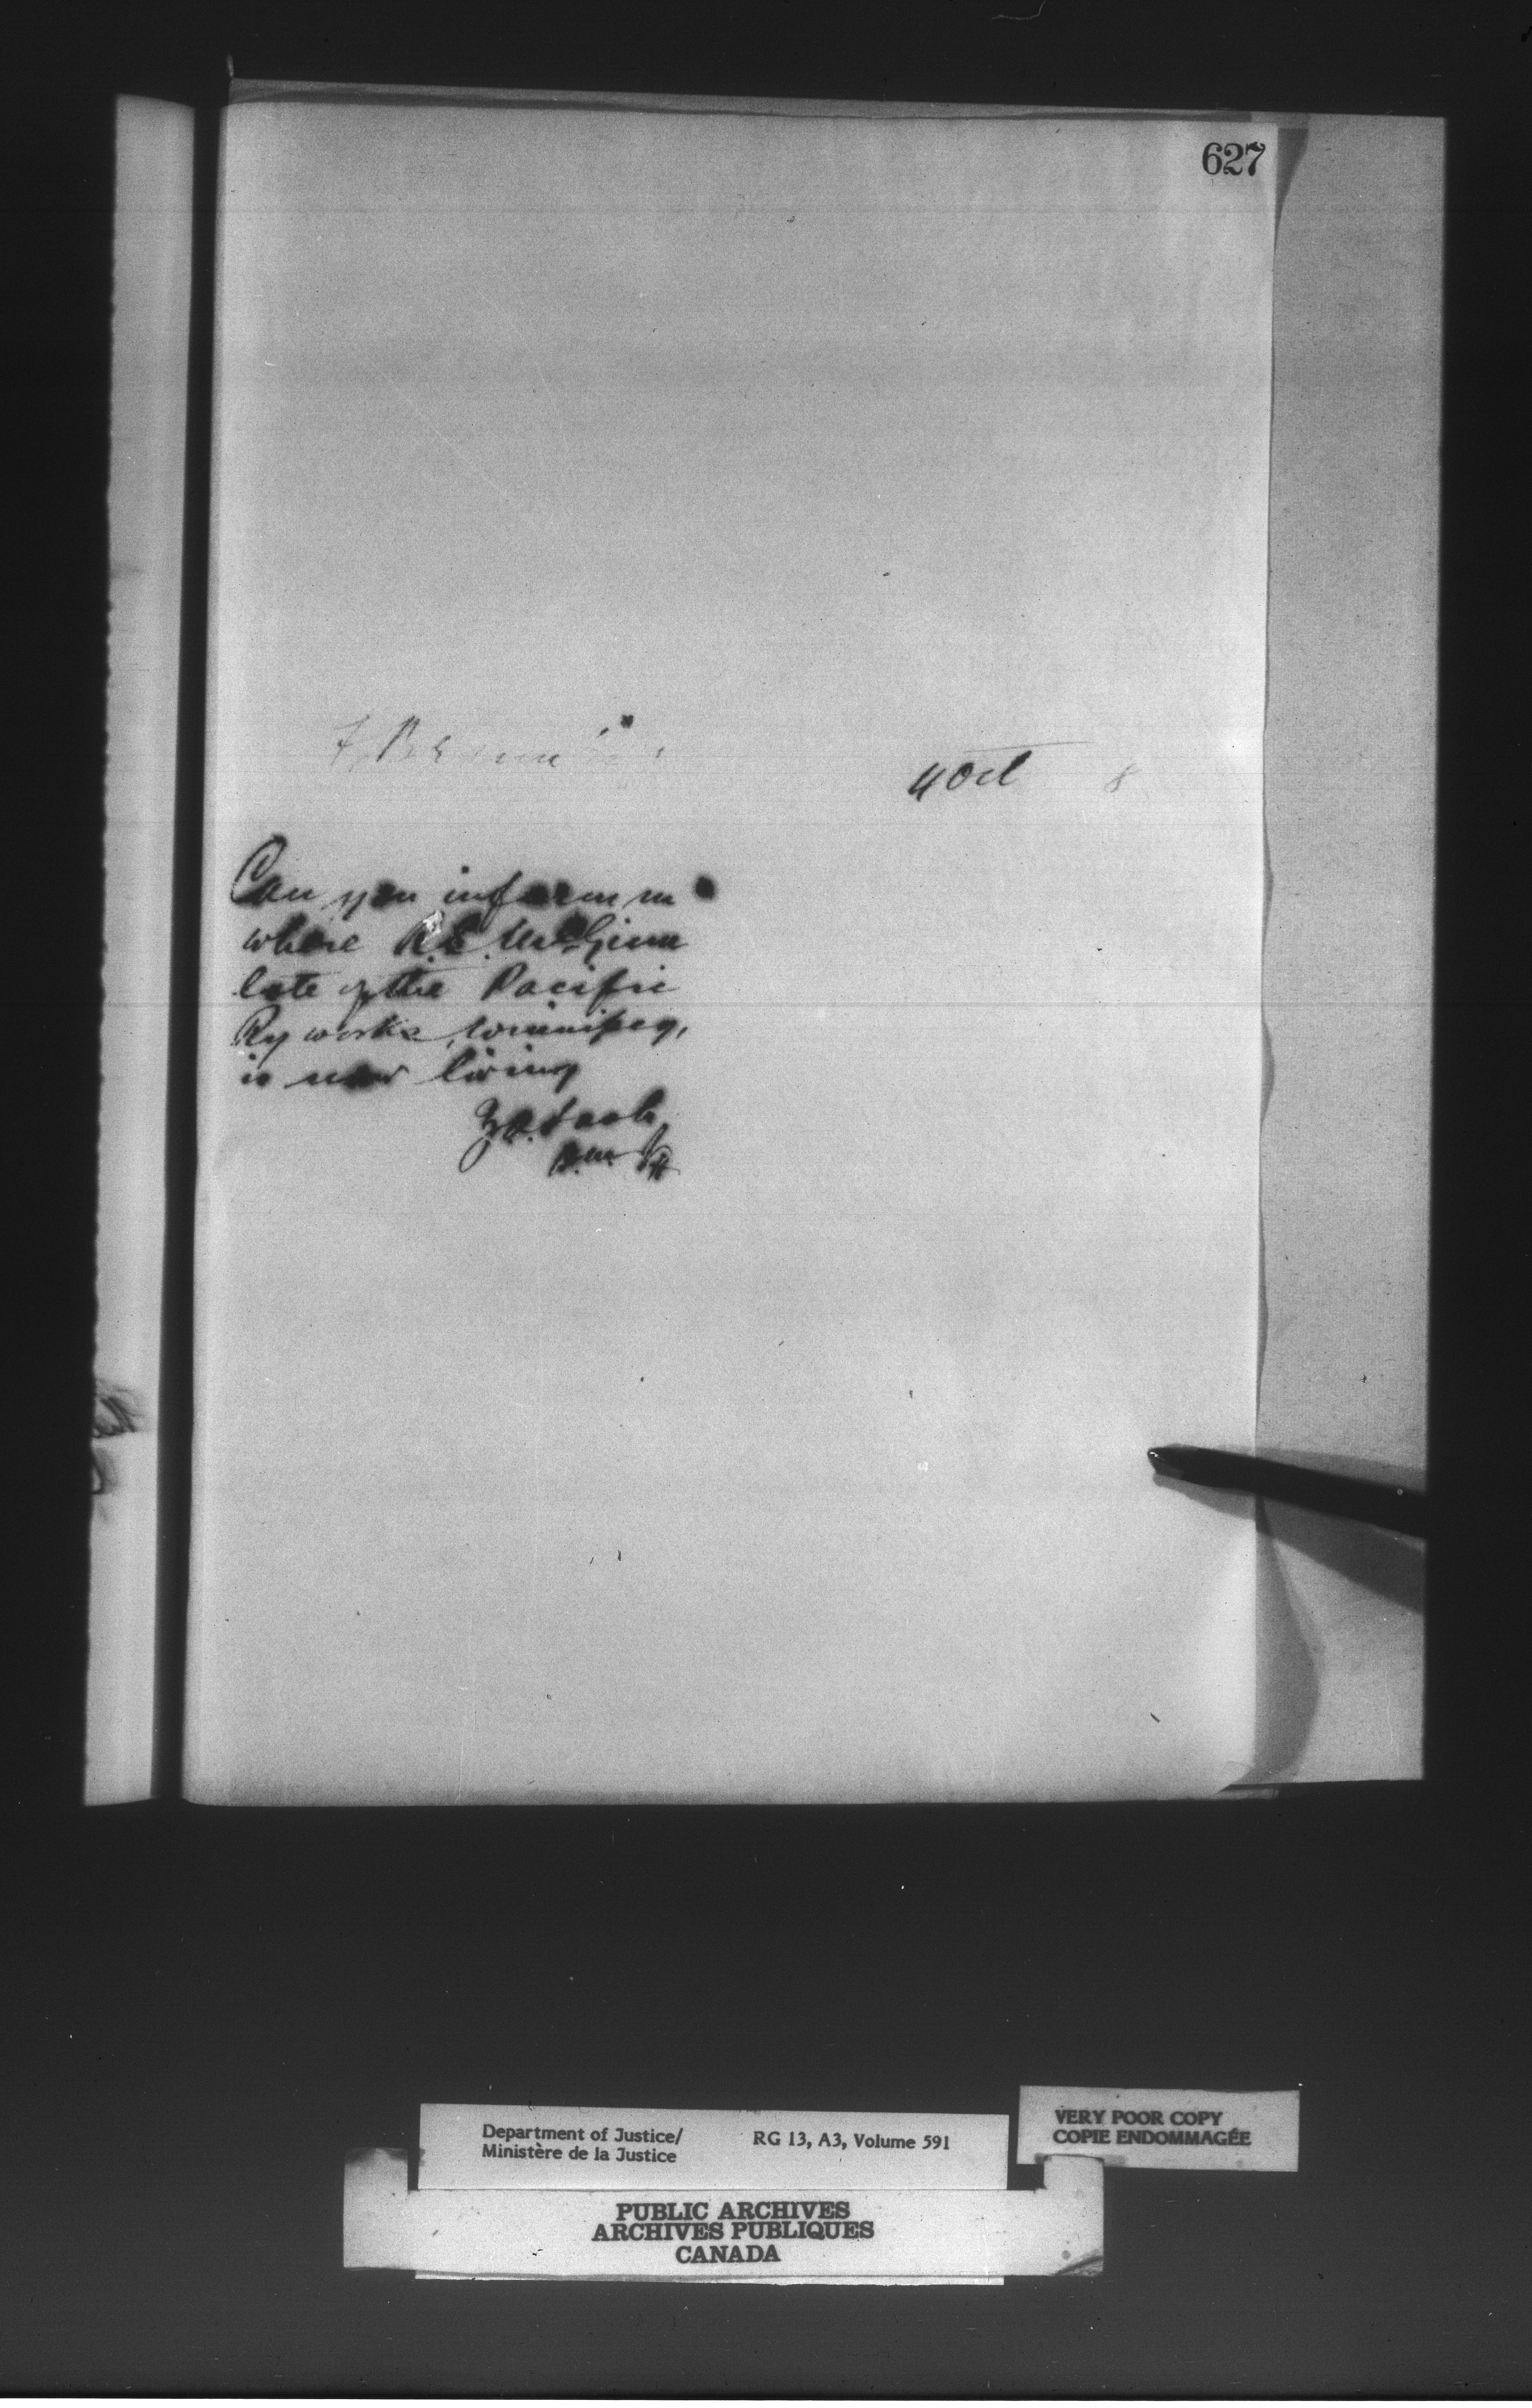 627
F. Braun
4 Oct 8
Can you inform me
where R. E. McGinn
late of the Pacific
Ry works, Winnipeg,
is now living
Z A Lash
D. M. J
Department of Justice/
Ministère de la Justice
RG 13, A3, Volume 591
VERY POOR COPY
COPIE ENDOMMAGÉE
PUBLIC ARCHIVES
ARCHIVES PUBLIQUES
CANADA